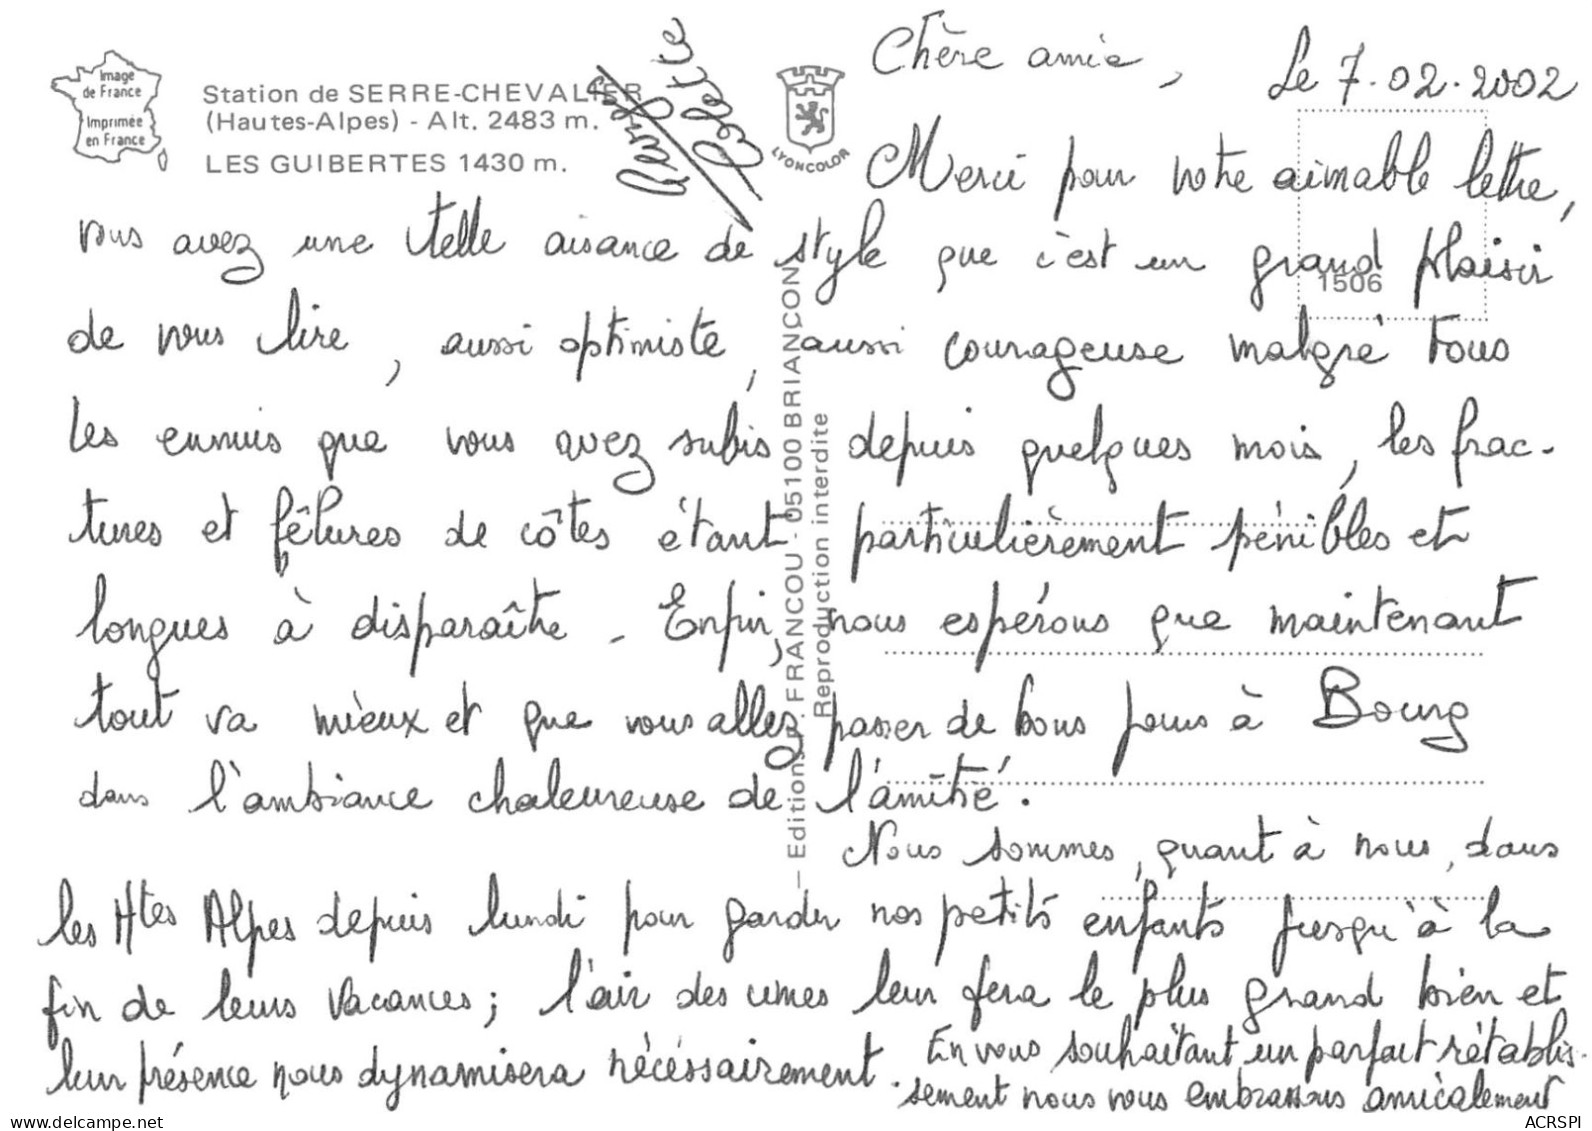 Image
de France
Imprimée
en France
Station de SERRE-CHEVALIER
(Hautes-Alpes) - Alt. 2483 m.
LES GUIBERTES 1430 m.
Colette
LYONCOLOR
1506
— Editions FRANCOU - 05100 BRIANÇON
Reproduction interdite
Chère amie,
Le 7.02.2002
Merci pour votre aimable lettre,
vous avez une telle aisance de style que c'est un grand plaisir
de vous lire, aussi optimiste, aussi courageuse malgré tous
les ennuis que vous avez subis depuis quelques mois, les frac-
tures et fêlures de côtes étant particulièrement pénibles et
longues à disparaître - Enfin, nous espérons que maintenant
tout va mieux et que vous allez passer de bons jours à Bourg
dans l'ambiance chaleureuse de l'amitié.
Nous sommes, quant à nous, dans
les Htes Alpes depuis lundi pour garder nos petits enfants jusqu'à la
fin de leurs vacances; l'air des cimes leur fera le plus grand bien et
leur présence nous dynamisera nécessairement. En vous souhaitant un parfait rétablis-
sement nous vous embrassons amicalement
delcampe.net
ACRSPI